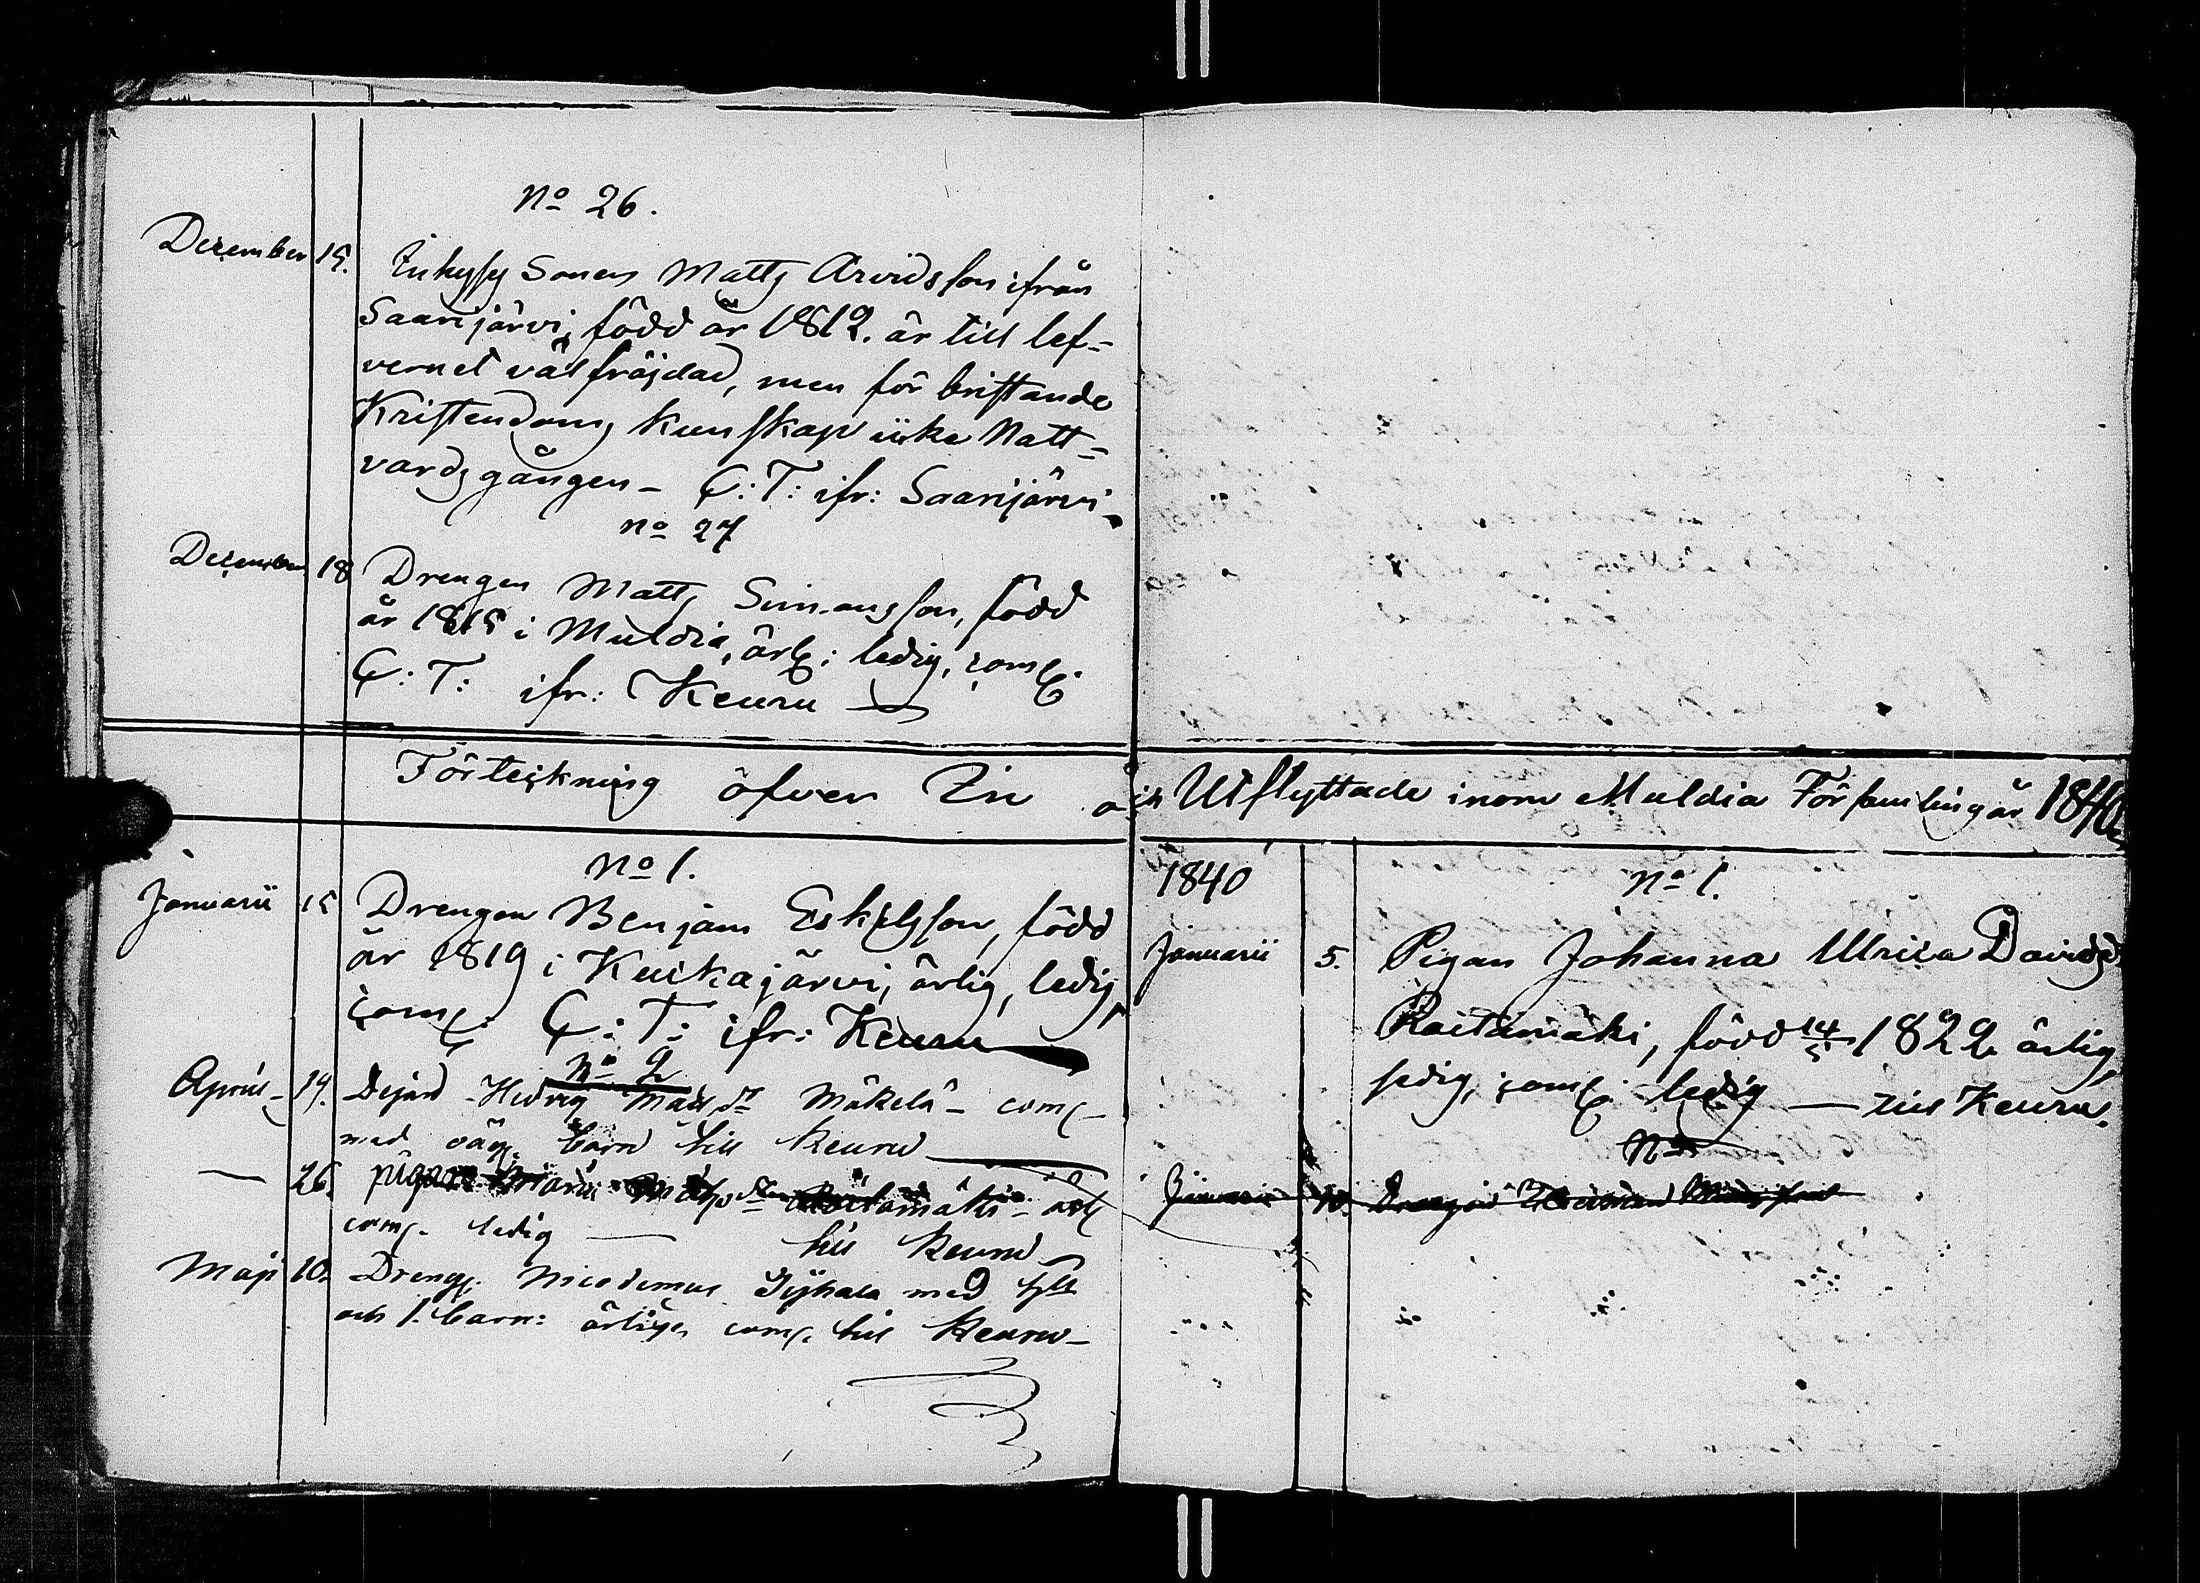 No 26.
December 15. Inhyses Sonen Matts Arvidsson ifrån
Saarijärvi, född år 1812. är till lef=
vernet välfräjdad, men för bristande
Kristendoms kunskap icke Natt=
vards gången - C: T: ifr: Saarijärvi.
No 27
December 18 Drengen Matts Simonsson, född
år 1815 i Muldia, ärl: ledig, com:
C: T: ifr: Keuru
Förteckning öfver In och Utflyttade inom Muldia Församling år 1840
No 1.
Januarii 15 Drengen Benjam Eskilsson, född
år 1819 i Kuikajärvi, ärlig, ledig,
com: C: T: ifr: Keuru
No 2
April 19. Hedvig Mats dr Mäkelä - com:
med barn till Keuru
— 26. pigan Maria
com. ledig — till Keuru
Maji 10. Dreng: Nicodemus med
och 1. barn: ärlige, com. till Keuru -
1840
No 1.
Januarii 5. Pigan Johanna Ulrica Davidsd
Raitamäki, född 14/5 1822 ärlig,
ledig, com: ledig — till Keuru.
No
Januarii 10. Drengen